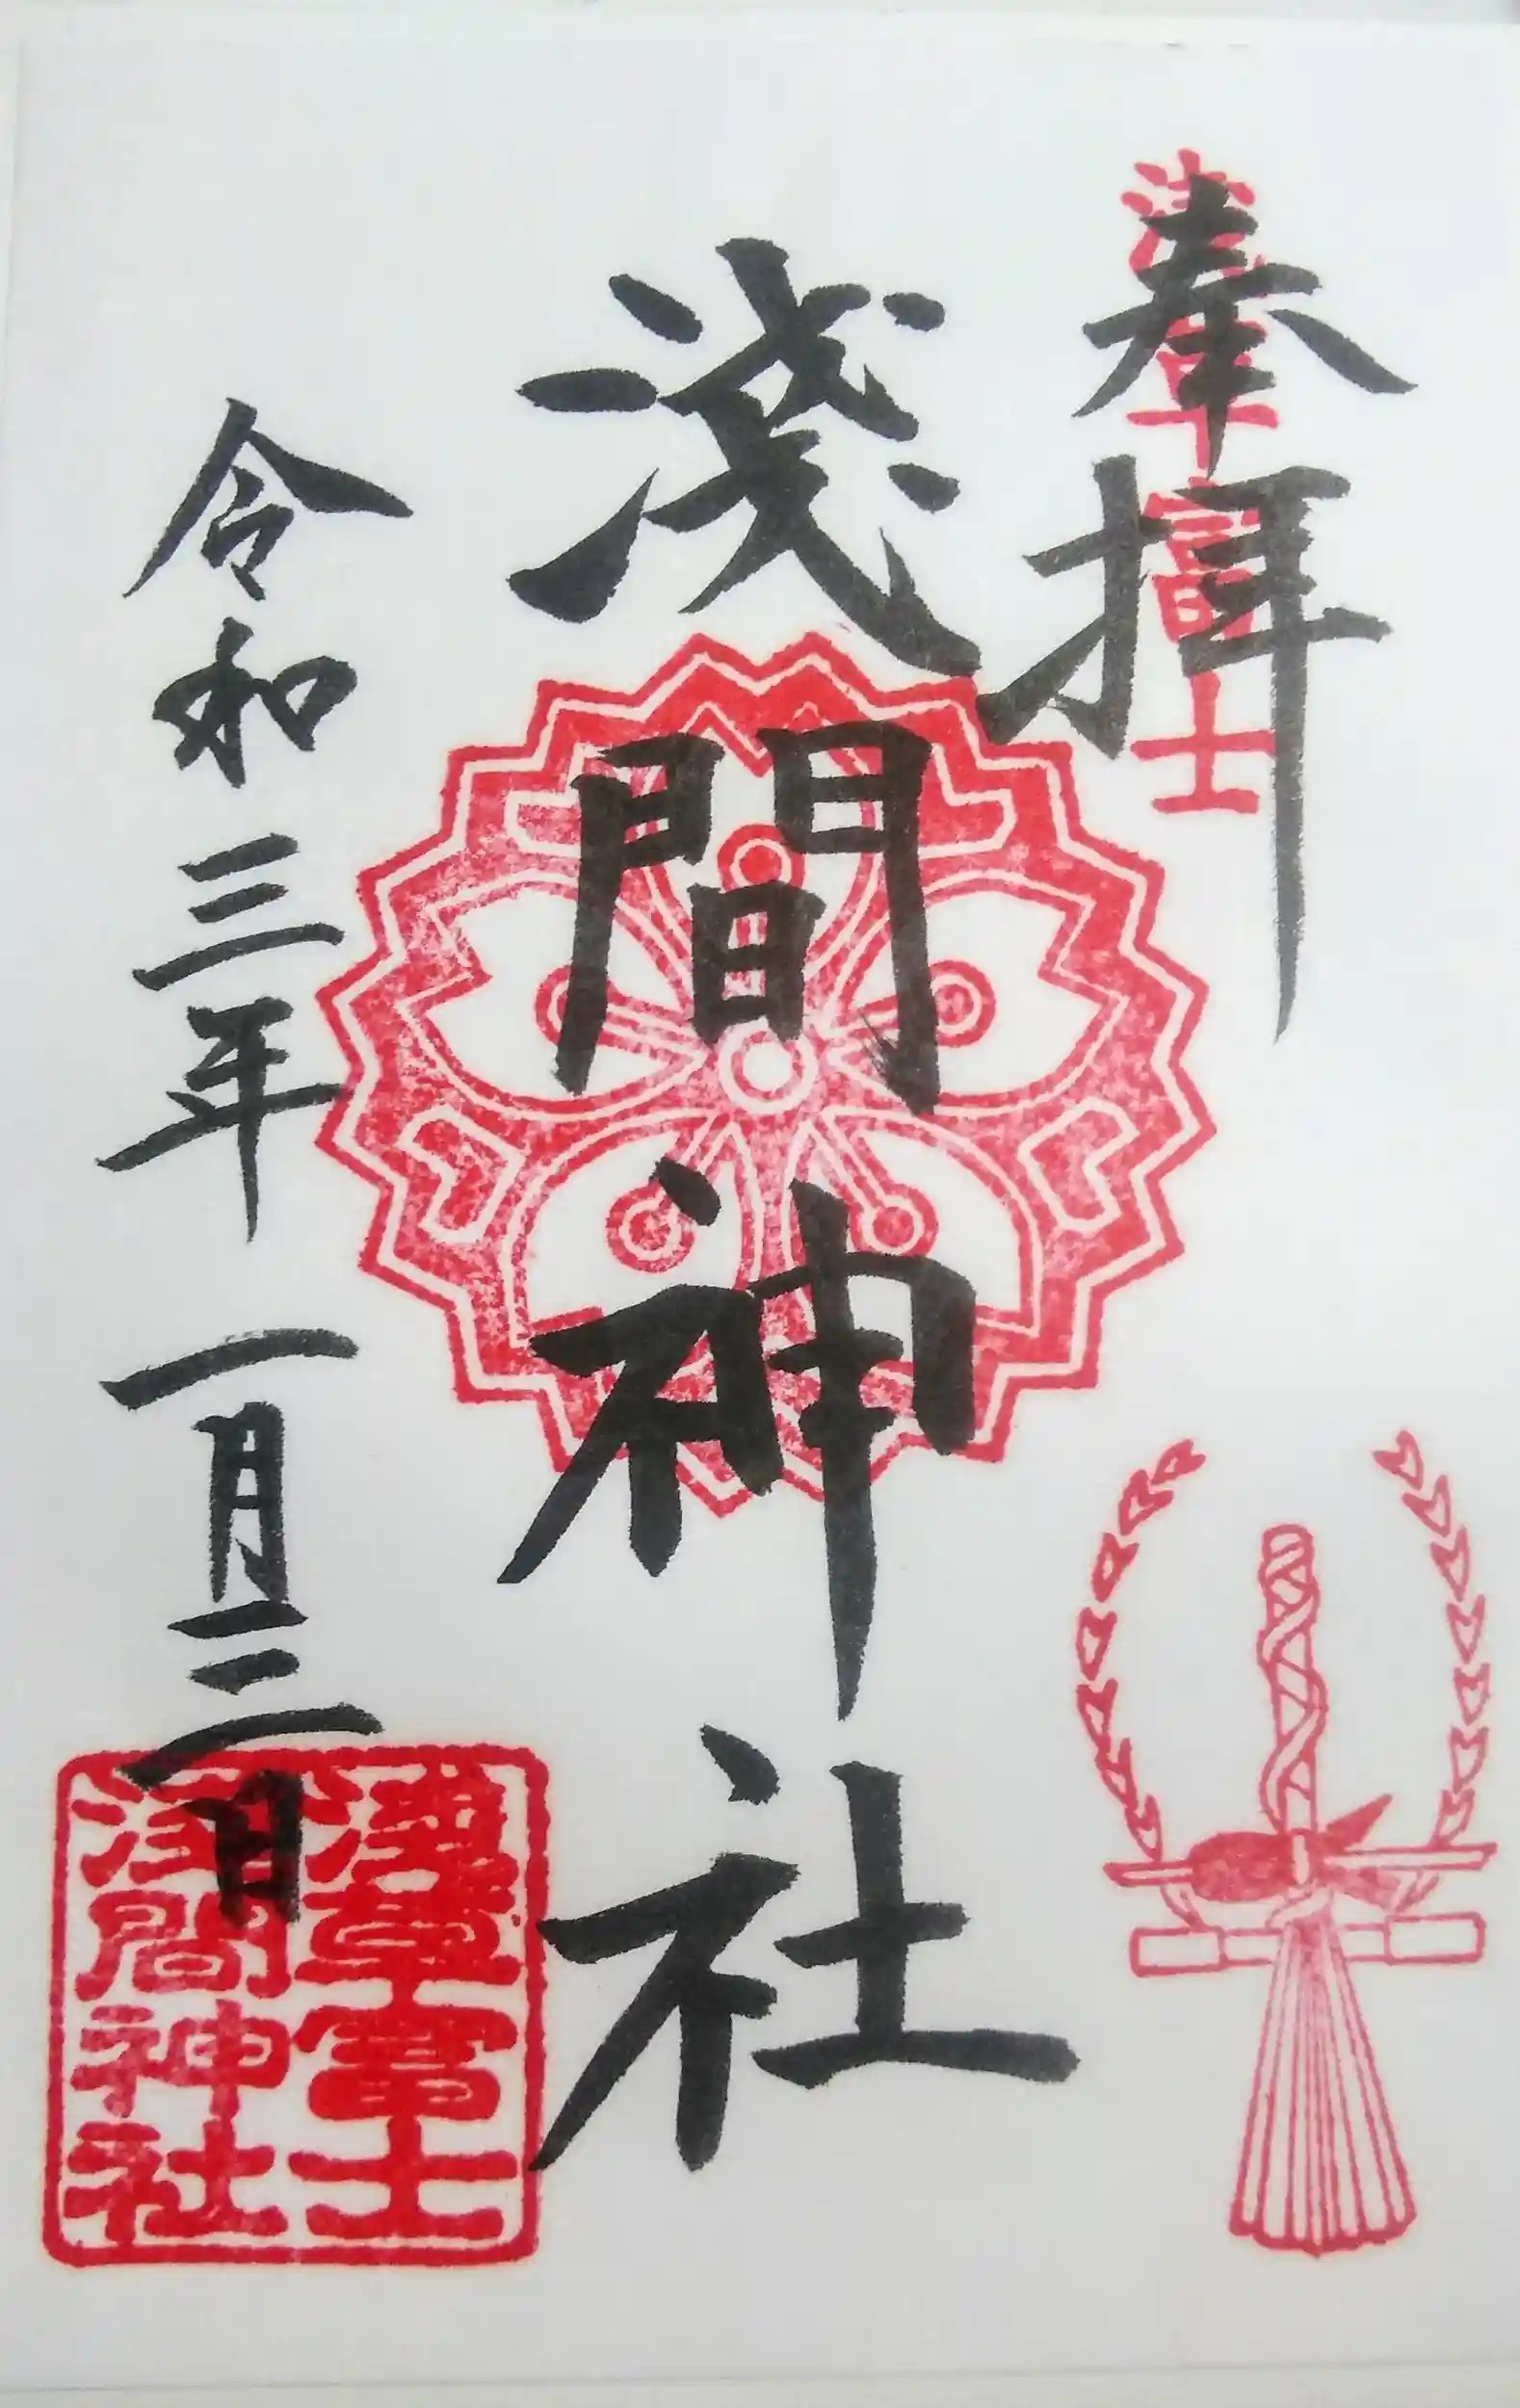 奉拝
浅草富士
淺間神社
令和三年 一月三日
浅草富士
浅間神社